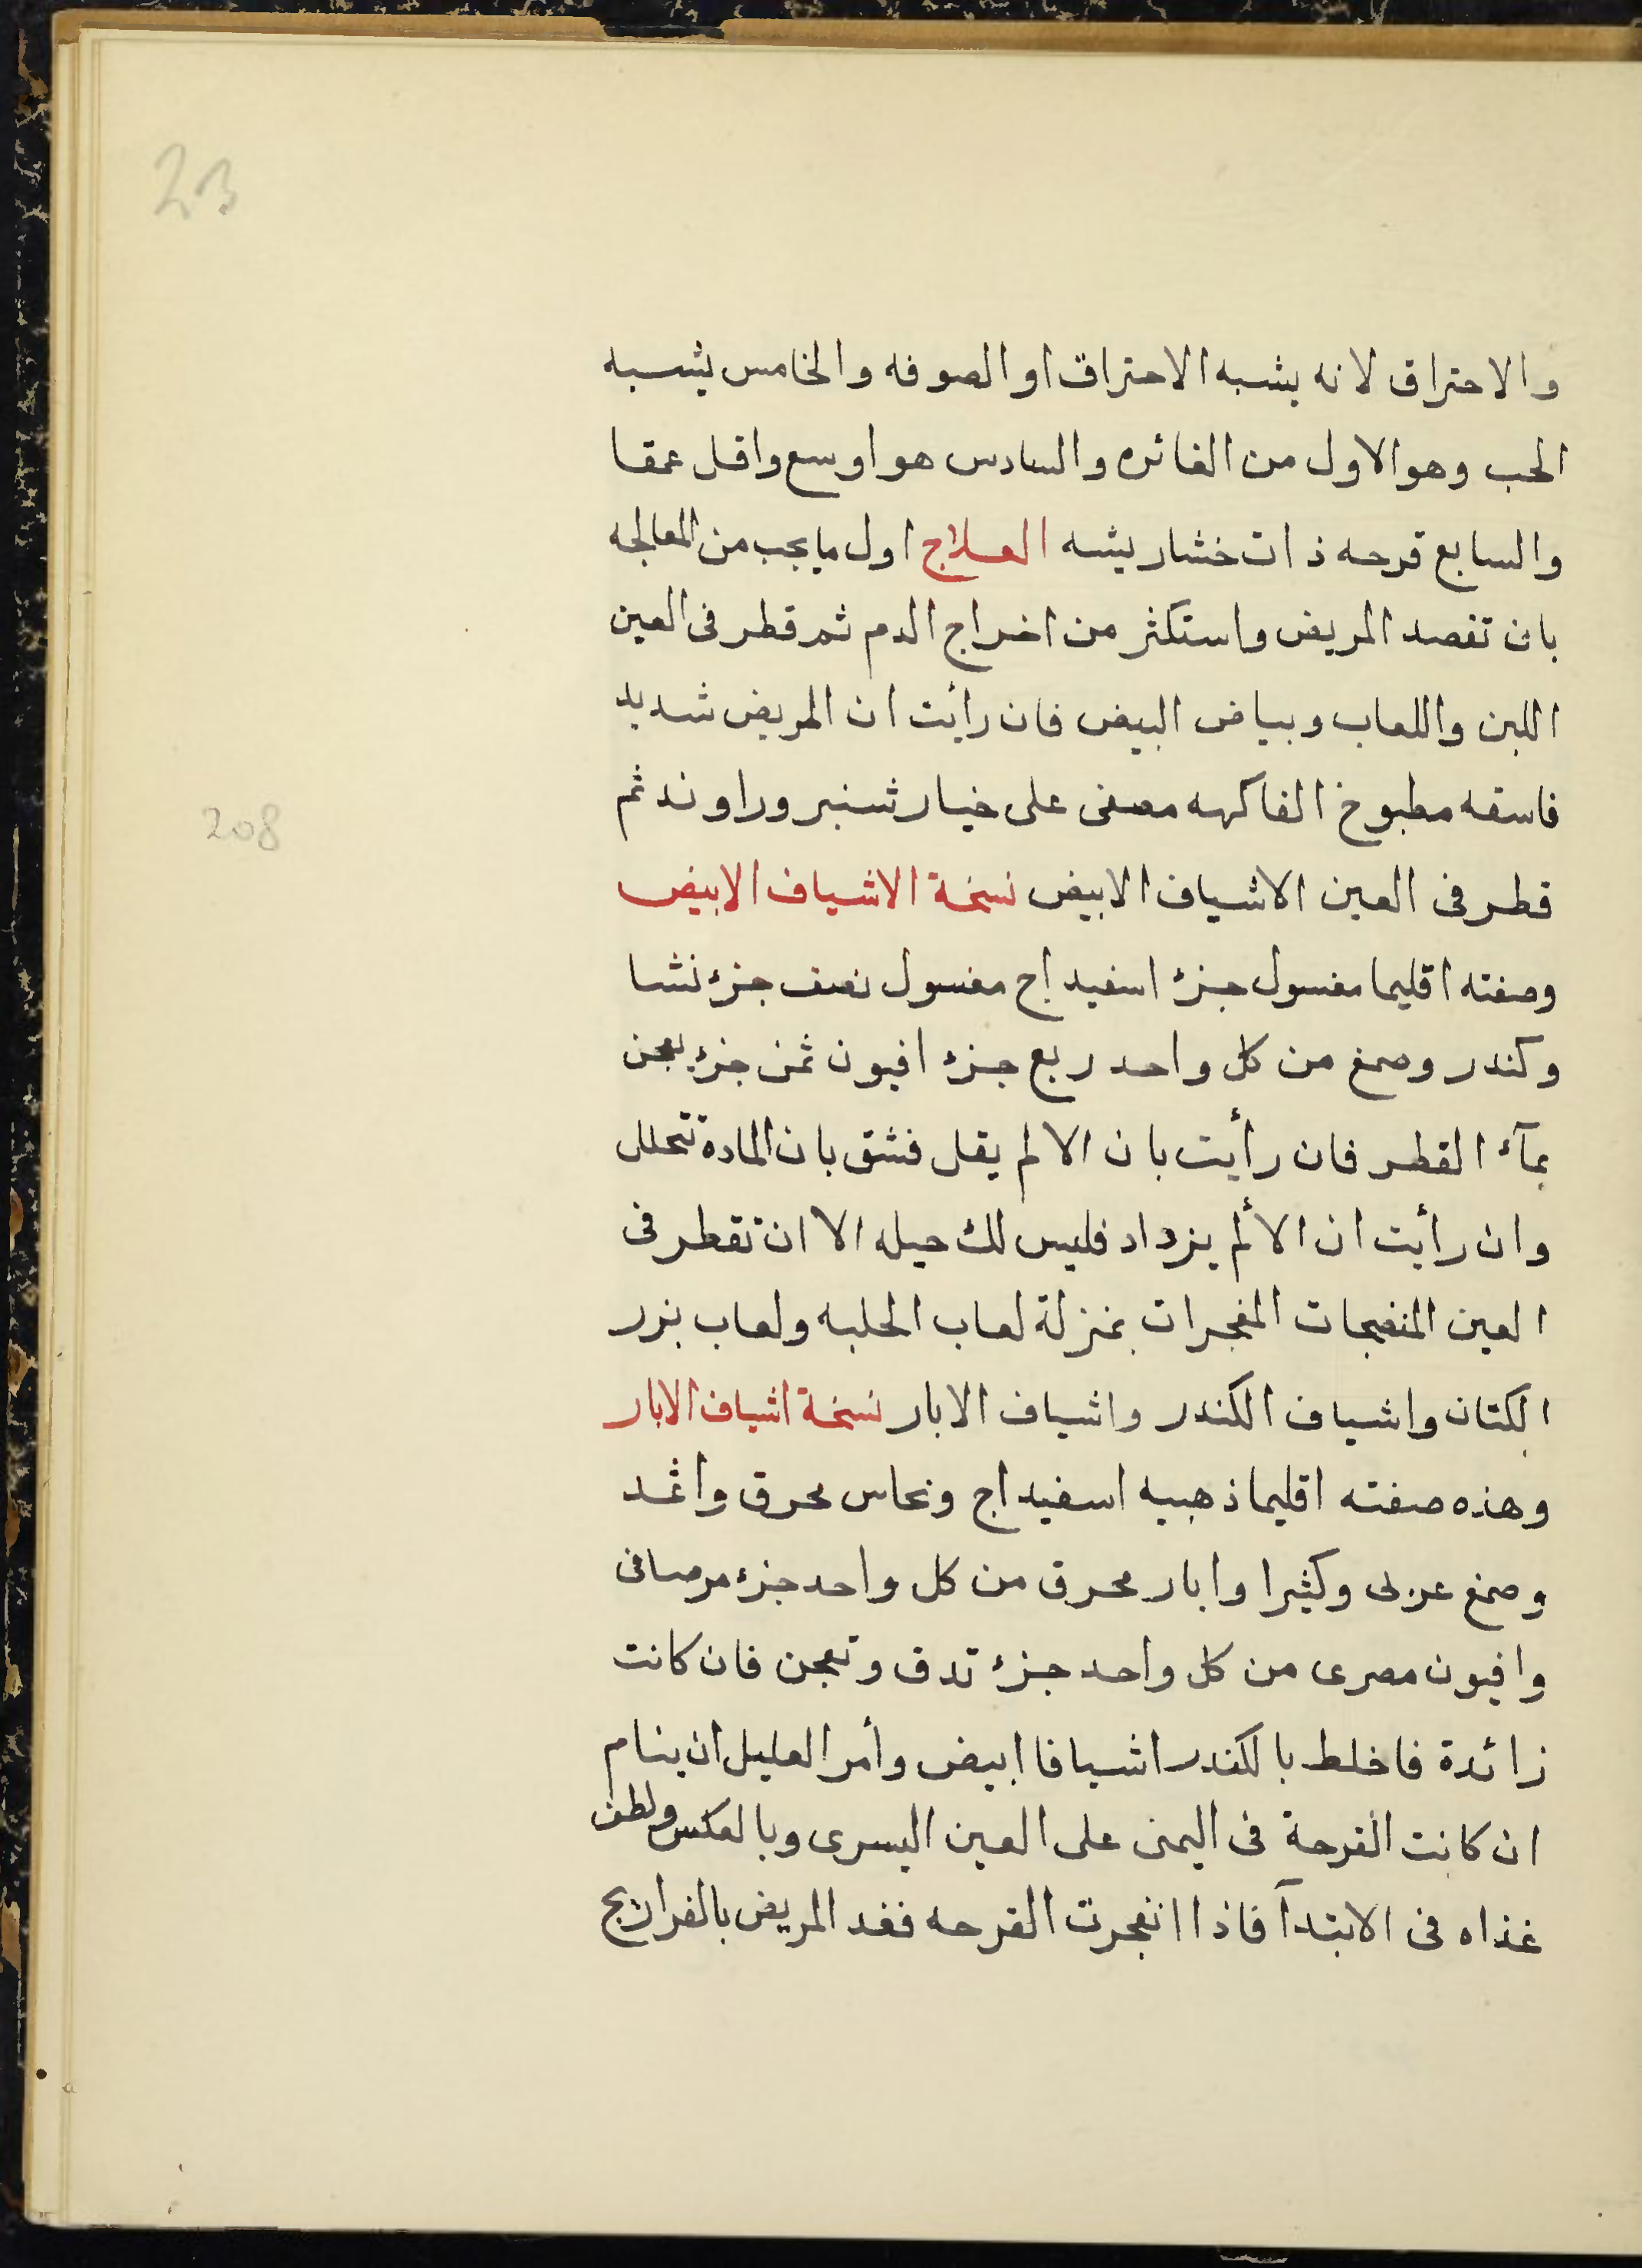 23
والاحتراق لانه يشبه الاحتراق او الصوفه والخامس يشبه
الحب وهو الاول من الغائره والسادس هو اوسع واقل عمقا
والسابع قرحه ذات خشاريشه العلاج اول ما يجب من المعالجه
بان تفصد المريض واستكثر من اخراج الدم ثم قطر فى العين
اللبن واللعاب وبياض البيض فان رأيت ان المريض شديد
فاسقه مطبوخ الفاكهه مصفى على خيار شنبر وراوند ثم
208
قطر فى العين الاشياف الابيض نسخة الاشياف الابيض
وصفته اقليما مغسول جزء اسفيداج مغسول نصف جزء نشا
وكندر وصمغ من كل واحد ربع جزء افيون ثمن جزء يعجن
بمآء القطر فان رأيت بان الالم يقل فشق بان المادة تتحلل
وان رأيت ان الألم يزداد فليس لك حيله الا ان تقطر فى
العين المنضجات المفجرات بمنزلة لعاب الحلبه ولعاب بزر
الكتان واشياف الكندر واشياف الابار نسخة اشياف الابار
وهذه صفته اقليما ذهبيه اسفيداج ونحاس محرق واثمد
وصمغ عربى وكثيرا وابار محرق من كل واحد جزء مر صافى
وافيون مصرى من كل واحد جزء تدق وتعجن فان كانت
زائدة فاخلط بالكندر اشيافا ابيض وأمر العليل ان ينام
ان كانت القرحة فى اليمنى على العين اليسرى وبالعكس ولطف
غذاه فى الابتدآ فاذا انفجرت القرحه فغد المريض بالفراريج